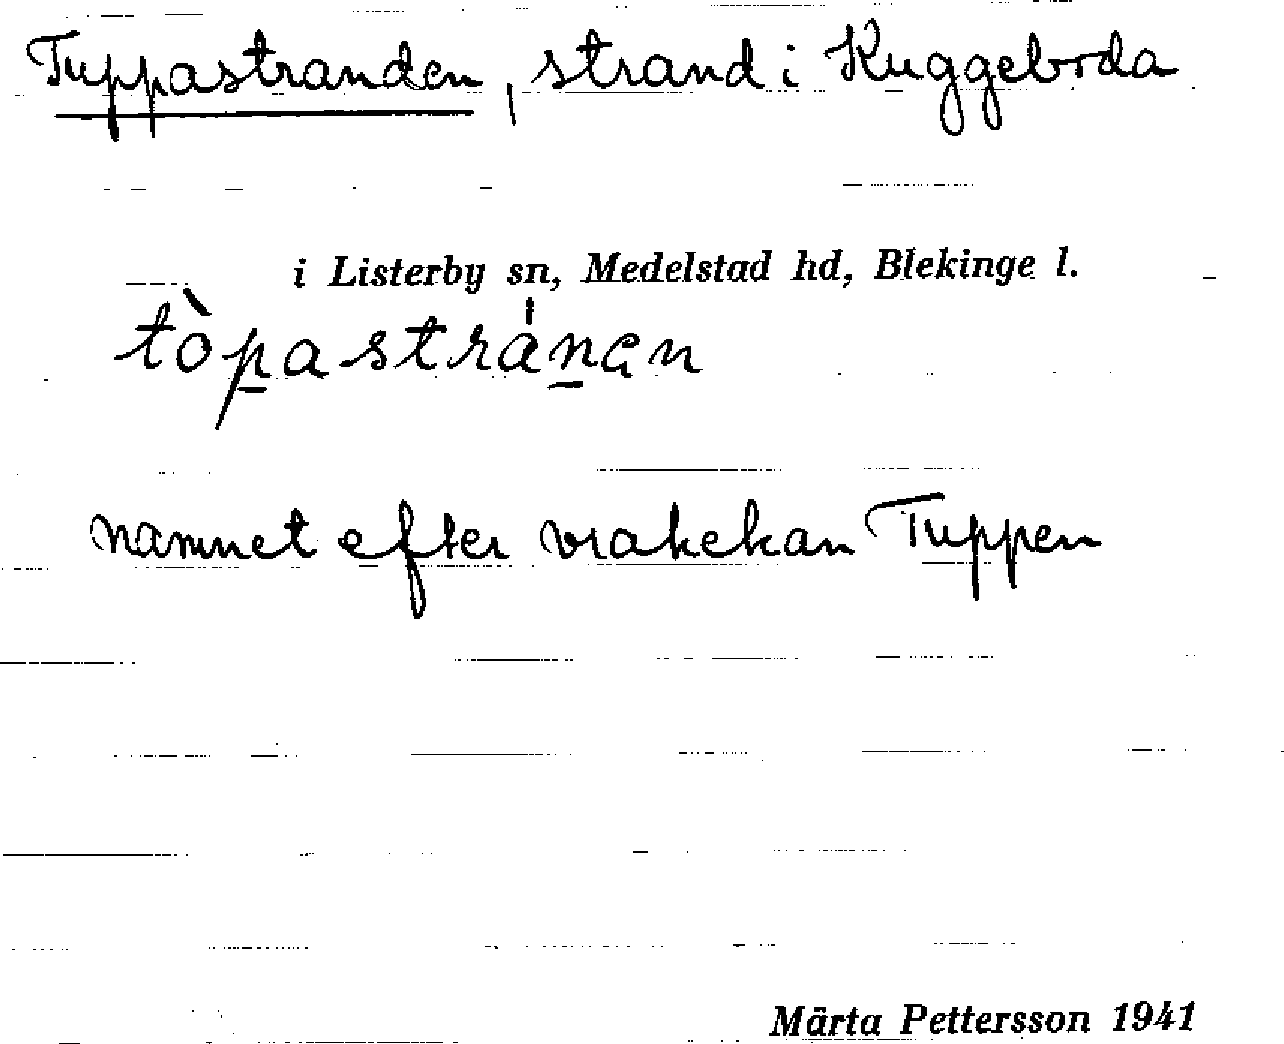 Tuppastranden, strand i Kuggeboda
i Listerby sn, Medelstad hd, Blekinge l.
tòpastránen
namnet efter vrakekan Tuppen
Märta Pettersson 1941